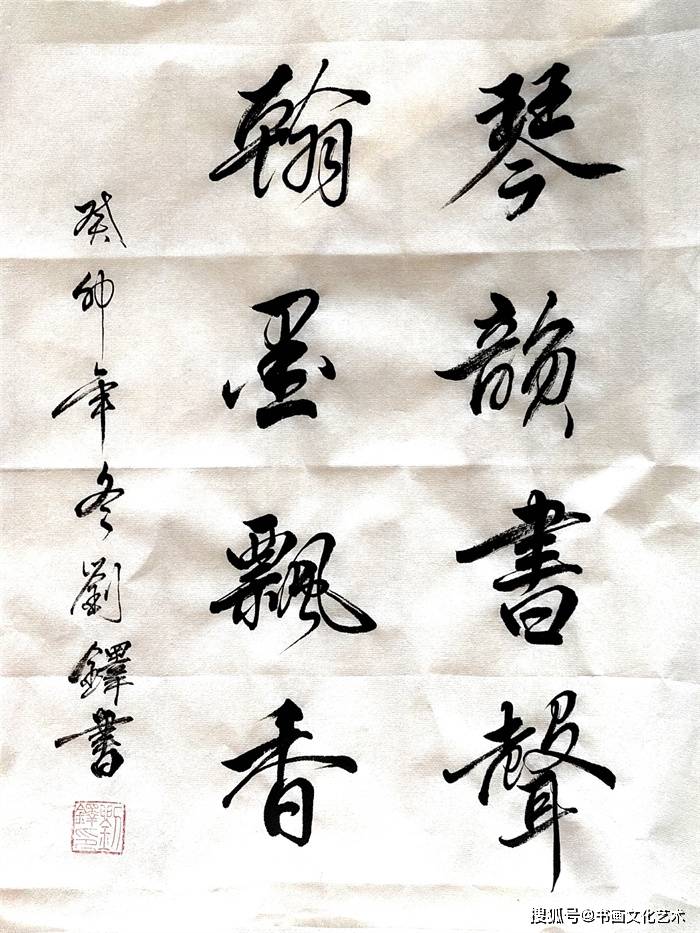 琴韻書聲
翰墨飄香
癸卯年冬劉鐸書
劉鐸印
搜狐号@书画文化艺术